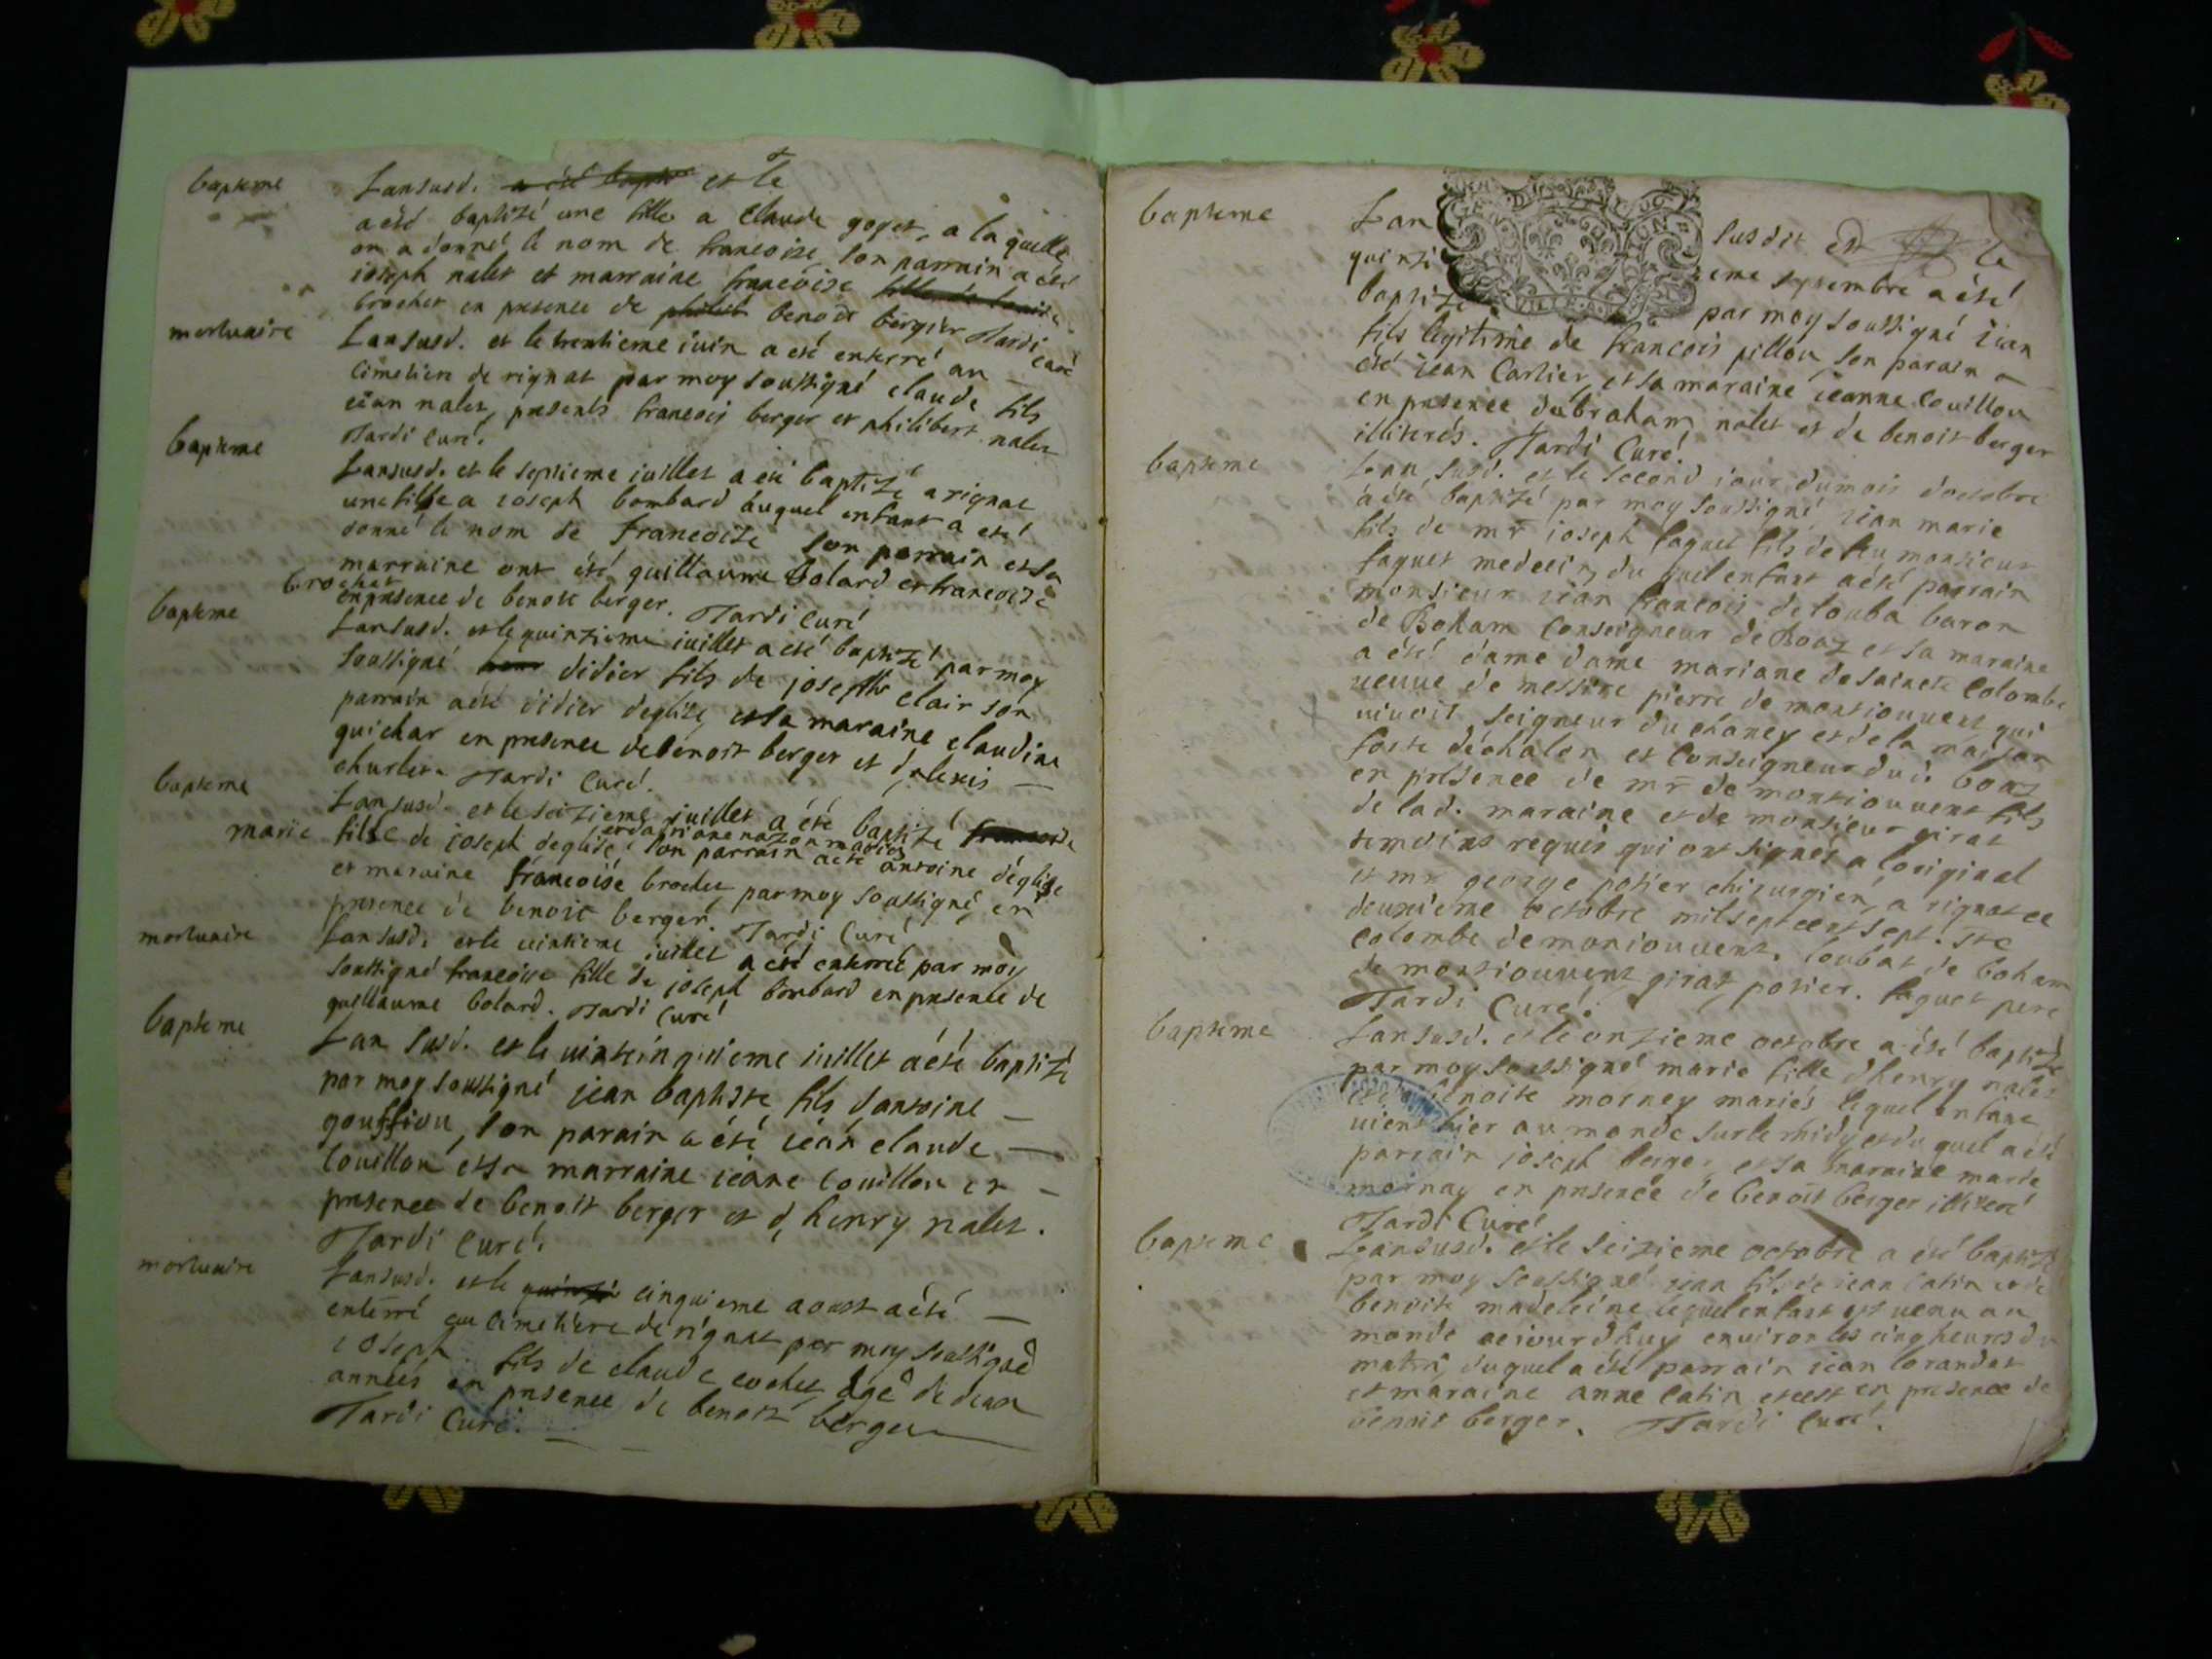 bapteme
Lansusd. a été bapti et le
a eté baptizé une fille a claude goget, a laquelle
on a donné le nom de francoise son parrain a été
ioseph nalet et marraine francoise fille de
brochet en presence de benoit bergier Tardi curé
mortuaire
Lansusd. et le trentieme iuin a eté enterré au
cimetiere de rignat par moy soussigné claude fils
iean nalet, presents francois berger et philibert nalet
Tardi curé.
bapteme
Lansusd. et le septieme iuillet a été baptizé a rignat
une fille a ioseph bombard auquel enfant a eté
donné le nom de francoize son parrain et sa
marraine ont été guillaume Bolard et francoise
brochet
en presence de benoit berger. Tardi curé
bapteme
Lansusd. et le quinzieme iuillet a eté baptizé par moy
soussigné didier fils de joseph clair son
parrain a eté didier deglize, et sa maraine claudine
guichar en presence de benoit berger et d,alexis
charlet. Tardi Curé.
bapteme
Lansusd. et le seizieme iuillet a été baptizé
marie fille de ioseph deglise son parrain a eté antoine déglise
et maraine francoise brochet, par moy soussigné, en
presence de benoit berger. Tardi Curé
mortuaire
Lansusd. et le vintieme iuillet a eté enterreé par moy
soussigné francoise fille de joseph bombard en presence de
guillaume bolard. Tardi curé
bapteme
Lan susd. et le vinteinquieme iuillet a été baptizé
par moy soussigné jean baptiste fils d,antoine
gouffion, son parain a été iean claude
Couillou et sa marraine ieane Couillou en
presence de benoit berger et d,henry nalet.
Tardi curé.
mortuaire
Lansusd. et le quinzie cinquieme aoust a été
enterré au cimetiere de rignat par moy soussigné
ioseph fils de claude cochet, agé de deux
années en presence de benoit berger
Tardi Curé.
bapteme
Lan susdit et le
quinzieme septembre a été
baptizé par moy soussigné iean
fils legitime de francois pillou, son parain a
été iean Carlier, et sa maraine ieanne Couillou
en presence d'abraham nalet et de benoit berger
illiterés. Tardi Curé.
bapteme
Lan susd. et le second iour du mois d'octobre
a été baptizé par moy soussigné iean marie
fils de mr ioseph faguet fils de feu monsieur
faguet medecin, du quel enfant a été parrain
monsieur iean francois de louba baron
de Boham Conseigneur de Boaz et sa maraine
a été dame dame mariane de saincte Colombe
veuve de messire pierre de montiouvent qui
vivoit seigneur du chaney et de la maison
forte déchalon et Conseigneur dud. boaz
en presence de mr de montiouvent fils
de lad. maraine et de monsieur girat
temoins requis qui ont signés a loriginal
et mr george potier chirurgien, a rignat ce
deuxieme octobre mil sept cent sept. Ste
Colombe de moniouvent. loubat de boham
de montiouvent girat, potier. faguet pere
Tardi Curé.
bapteme
Lansusd. et le onzieme octobre a été baptizé
par moy soussigné marie fille d'henry nalet
et de benoite mornay mariés lequel enfant
vient hier au monde sur le midy, et du quel a été
parrain joseph berger et sa maraine marie
mornay en presence de benoit berger illiteré
Tardi Curé
bapteme
Lansusd. et le seizieme octobre a été baptizé
par moy soussigné iean fils de iean Catin et de
benoite madeleine lequel enfant est venu au
monde aeiourdhuy environ les cinq heures du
matin, duquel a été parrain iean lorandat
et maraine anne Catin et cest en presence de
benoit berger. Tardi Curé.